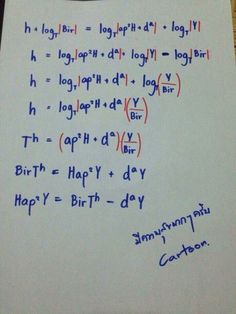 h + log_T|Bir| = log_T|ap²H + dᵃ| + log_T|Y|
h = log_T|ap²H + dᵃ| + log_T|Y| - log_T|Bir|
h = log_T|ap²H + dᵃ| + log_T(Y/Bir)
h = log_T|ap²H + dᵃ|(Y/Bir)
Tʰ = (ap²H + dᵃ)(Y/Bir)
BirTʰ = Hap²Y + dᵃY
Hap²Y = BirTʰ - dᵃY
มีความสุขมากๆครับ
Cartoon.